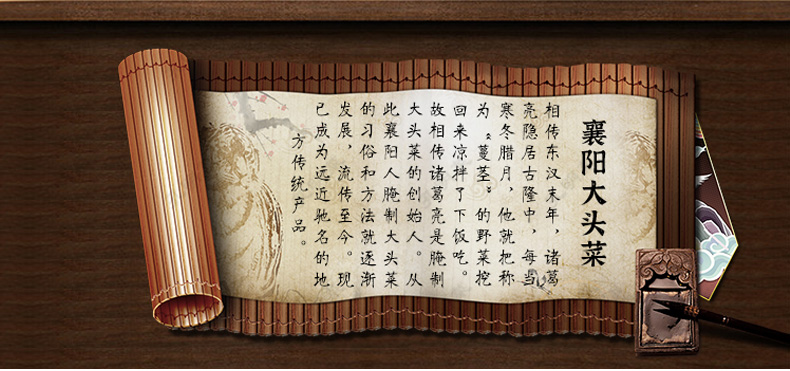 襄阳大头菜
相传东汉末年，诸葛
亮隐居古隆中，每当
寒冬腊月，他就把称
为“蔓茎”的野菜挖
回来凉拌了下饭吃。
故相传诸葛亮是腌制
大头菜的创始人。从
此襄阳人腌制大头菜
的习俗和方法就逐渐
发展，流传至今。现
已成为远近驰名的地
方传统产品。